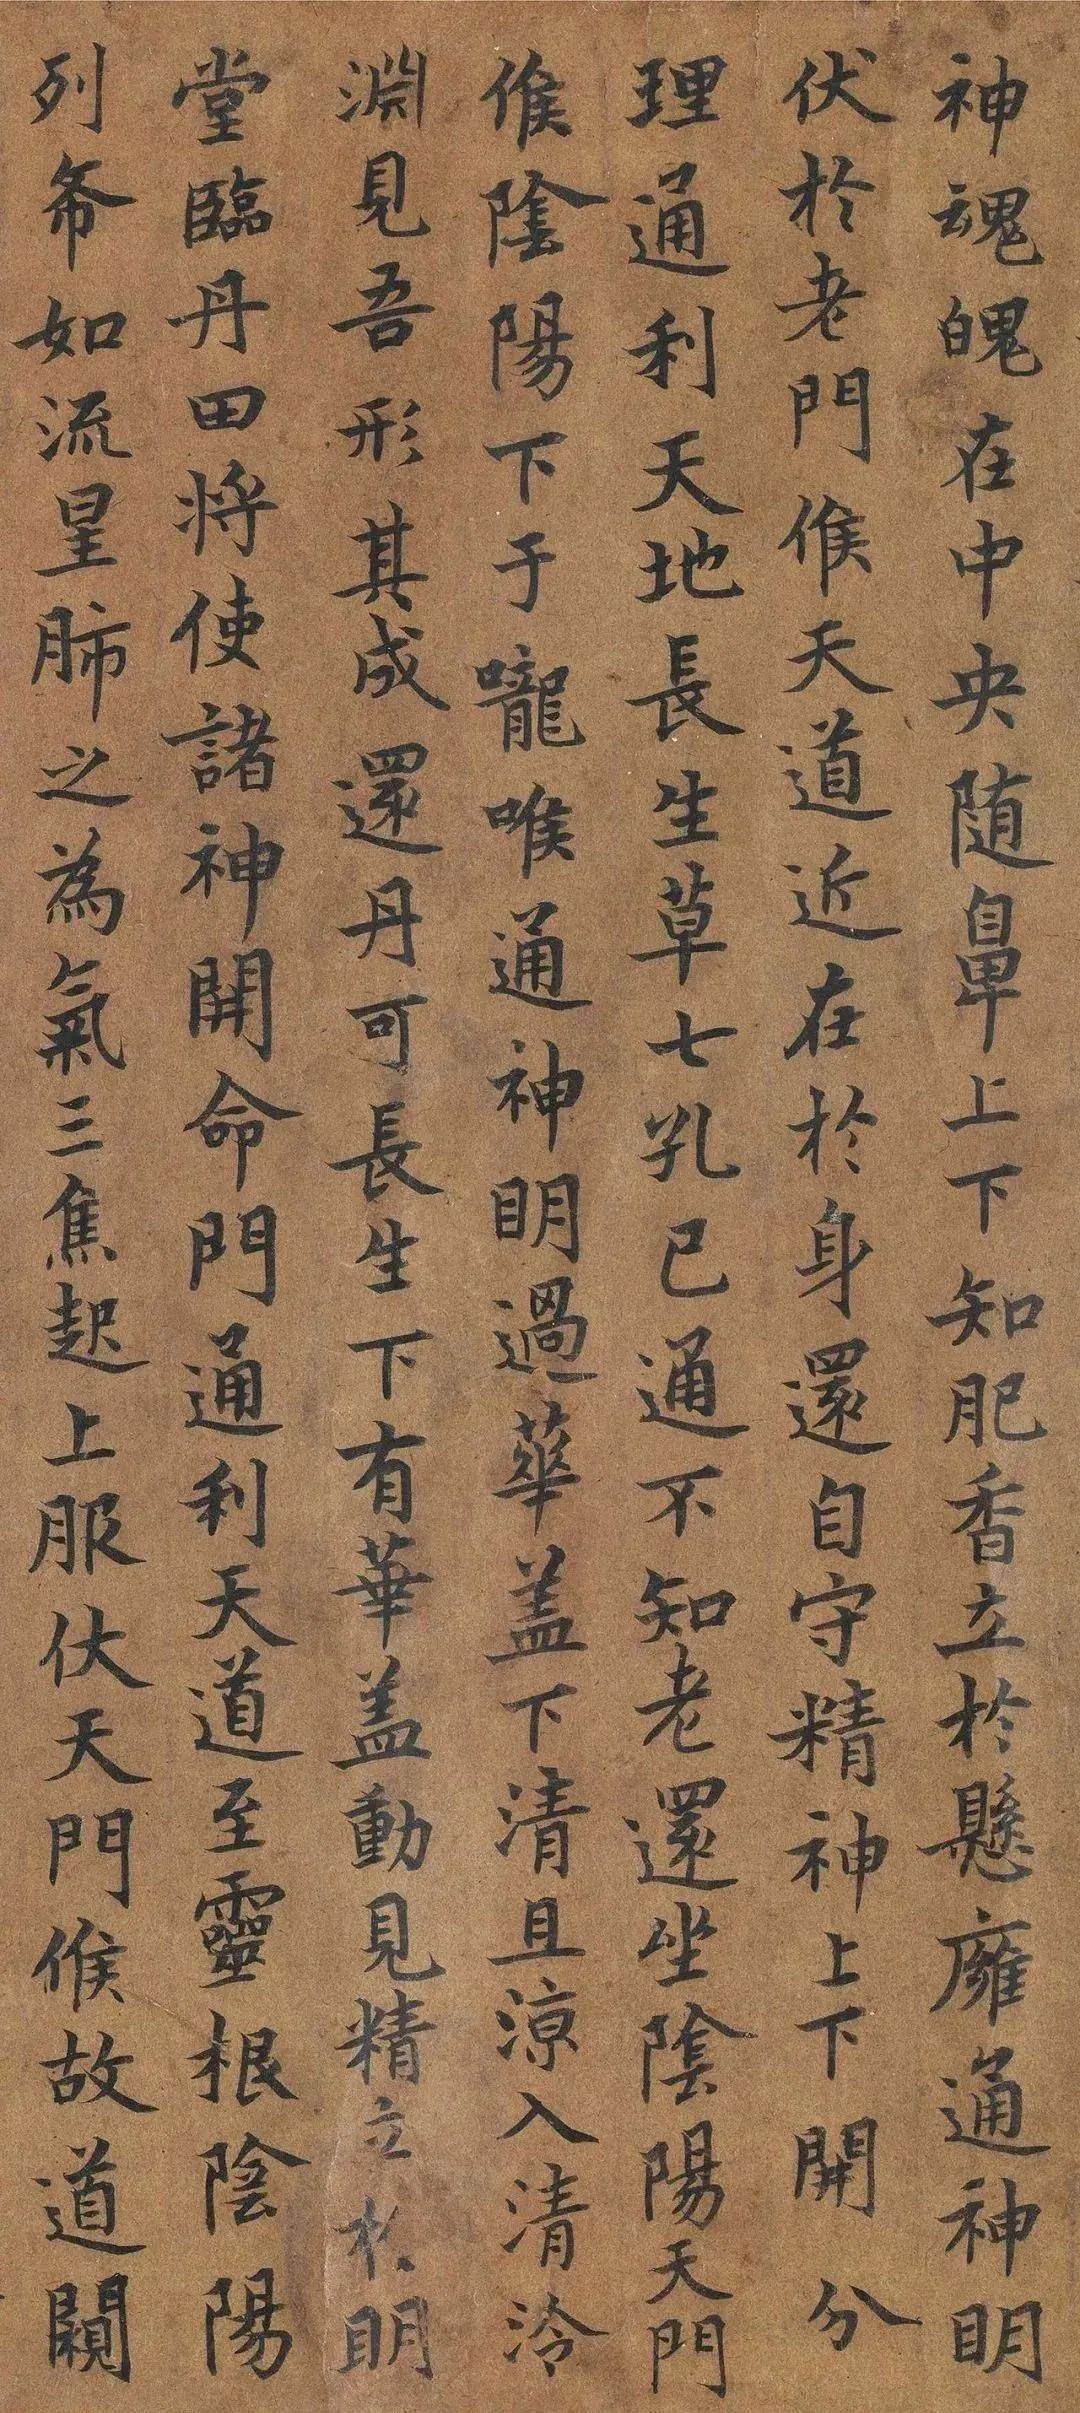 神魂魄在中央随鼻上下知肥香立於懸廱通神明
伏於老門候天道近在於身還自守精神上下開分
理通利天地長生草七孔已通不知老還坐陰陽天門
候陰陽下于嚨喉通神明過華盖下清且涼入清泠
淵見吾形其成還丹可長生下有華盖動見精立於明
堂臨丹田將使諸神開命門通利天道至靈根陰陽
列布如流星肺之為氣三焦起上服伏天門候故道闚